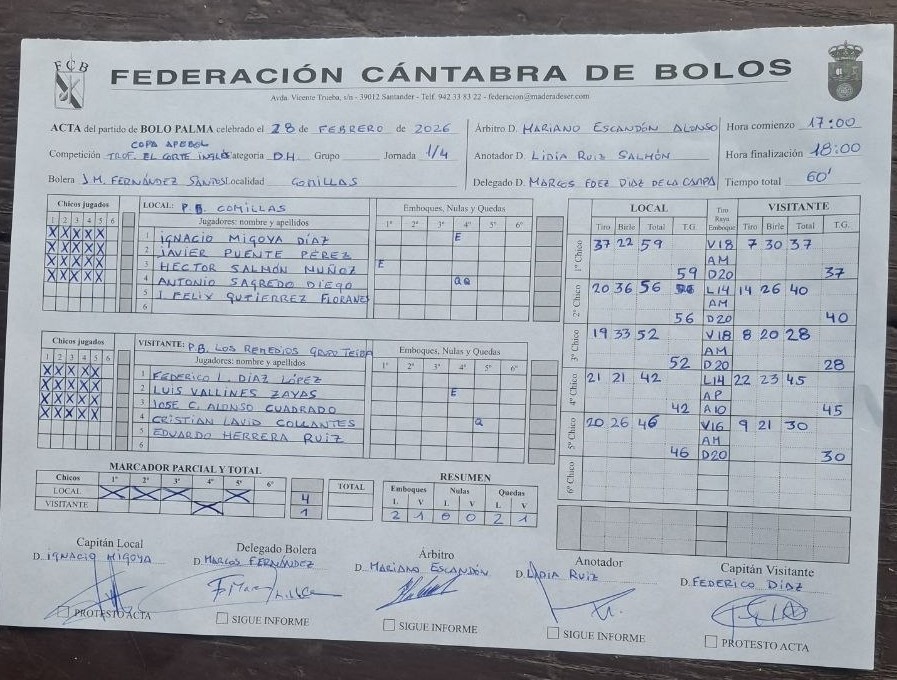 FCB
FEDERACIÓN CÁNTABRA DE BOLOS
Avda. Vicente Trueba, s/n - 39012 Santander - Telf. 942 33 83 22 - federacion@maderadeser.com
ACTA del partido de BOLO PALMA celebrado el 28 de FEBRERO de 2026
COPA APEBOL
Competición TROF. EL CORTE INGLÉS Categoría D.H. Grupo Jornada 1/4
Bolera J.M. FERNÁNDEZ SANTOS Localidad COMILLAS
Árbitro D. MARIANO ESCANDÓN ALONSO
Anotador D. LIDIA RUIZ SALMÓN
Delegado D. MARCOS FDEZ DIAZ DE LA CAMPA
Hora comienzo 17:00
Hora finalización 18:00
Tiempo total 60'
Chicos jugados
1 2 3 4 5 6
X X X X X
X X X X X
X X X X X
X X X X X
LOCAL: P.B. COMILLAS
Jugadores: nombre y apellidos
1 IGNACIO MIGOYA DÍAZ
2 JAVIER PUENTE PÉREZ
3 HECTOR SALMÓN MUÑOZ
4 ANTONIO SAGREDO DIEGO
5 J. FELIX GUTIERREZ FLORANES
6
Emboques, Nulas y Quedas
1º 2º 3º 4º 5º 6º
E
E
QQ
Chicos jugados
1 2 3 4 5 6
X X X X X
X X X X X
X X X X X
X X X X X
VISITANTE: P.B. LOS REMEDIOS GRUPO TEIBA
Jugadores: nombre y apellidos
1 FEDERICO L. DÍAZ LÓPEZ
2 LUIS VALLINES ZAYAS
3 JOSE C. ALONSO CUADRADO
4 CRISTIAN LAVID COLLANTES
5 EDUARDO HERRERA RUIZ
6
Emboques, Nulas y Quedas
1º 2º 3º 4º 5º 6º
E
Q
LOCAL Tiro Raya Emboque VISITANTE
Tiro Birle Total T.G. Tiro Birle Total T.G.
1º Chico 37 22 59 V18 7 30 37
AM
59 D20 37
2º Chico 20 36 56 L14 14 26 40
AM
56 D20 40
3º Chico 19 33 52 V18 8 20 28
AM
52 D20 28
4º Chico 21 21 42 L14 22 23 45
AP
42 A10 45
5º Chico 20 26 46 V16 9 21 30
AM
46 D20 30
6º Chico
MARCADOR PARCIAL Y TOTAL
Chicos 1º 2º 3º 4º 5º 6º TOTAL
LOCAL X X X X 4
VISITANTE X 1
RESUMEN
Emboques Nulas Quedas
L V L V L V
2 1 0 0 2 1
Capitán Local
D. IGNACIO MIGOYA
PROTESTO ACTA
Delegado Bolera
D. MARCOS FERNÁNDEZ
SIGUE INFORME
Árbitro
D. MARIANO ESCANDÓN
SIGUE INFORME
Anotador
D. LIDIA RUIZ
SIGUE INFORME
Capitán Visitante
D. FEDERICO DÍAZ
PROTESTO ACTA